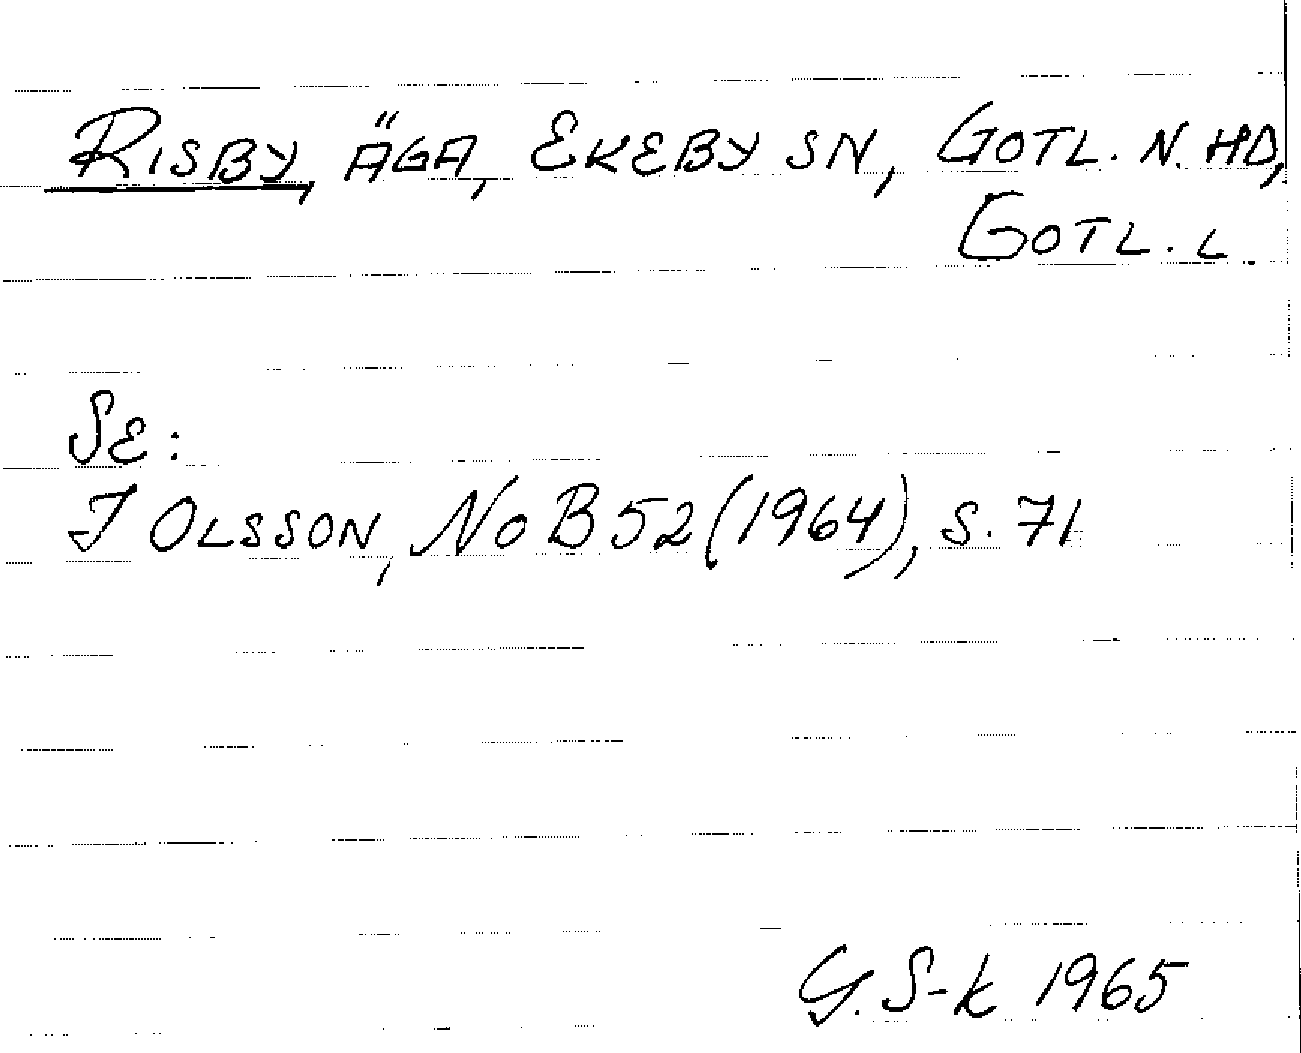 RISBY, ÄGA, EKEBY SN, GOTL. N. HD,
GOTL. L.
SE:
I OLSSON, NoB 52 (1964), S. 71
G. S-k 1965